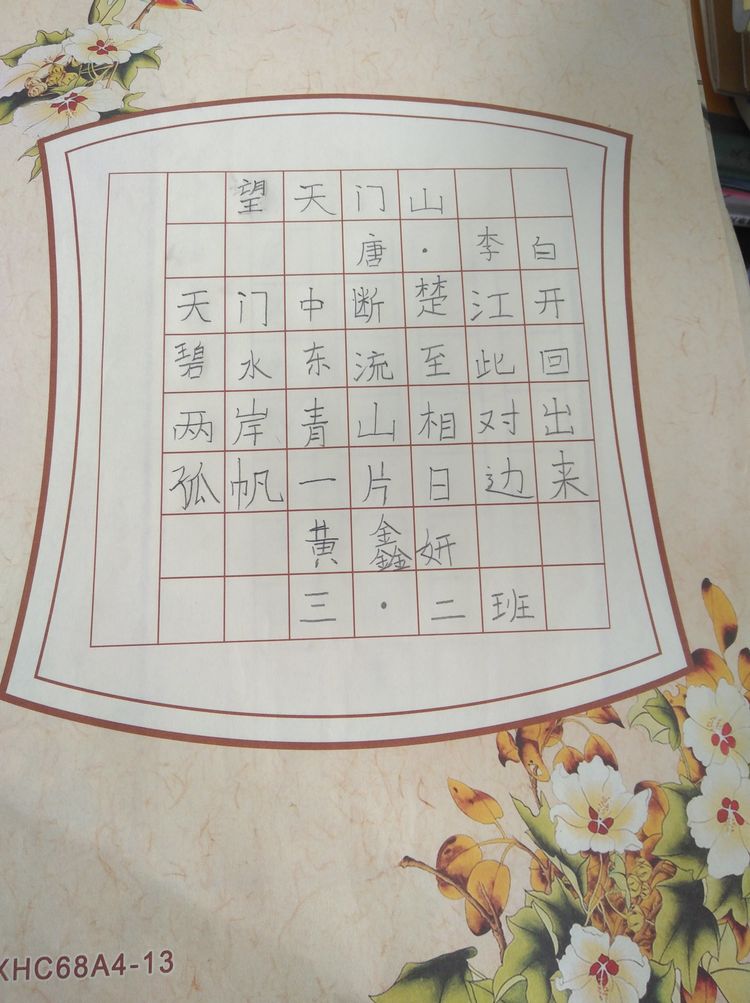 望天门山
唐·李白
天门中断楚江开
碧水东流至此回
两岸青山相对出
孤帆一片日边来
黄鑫妍
三·二班
XHC68A4-13